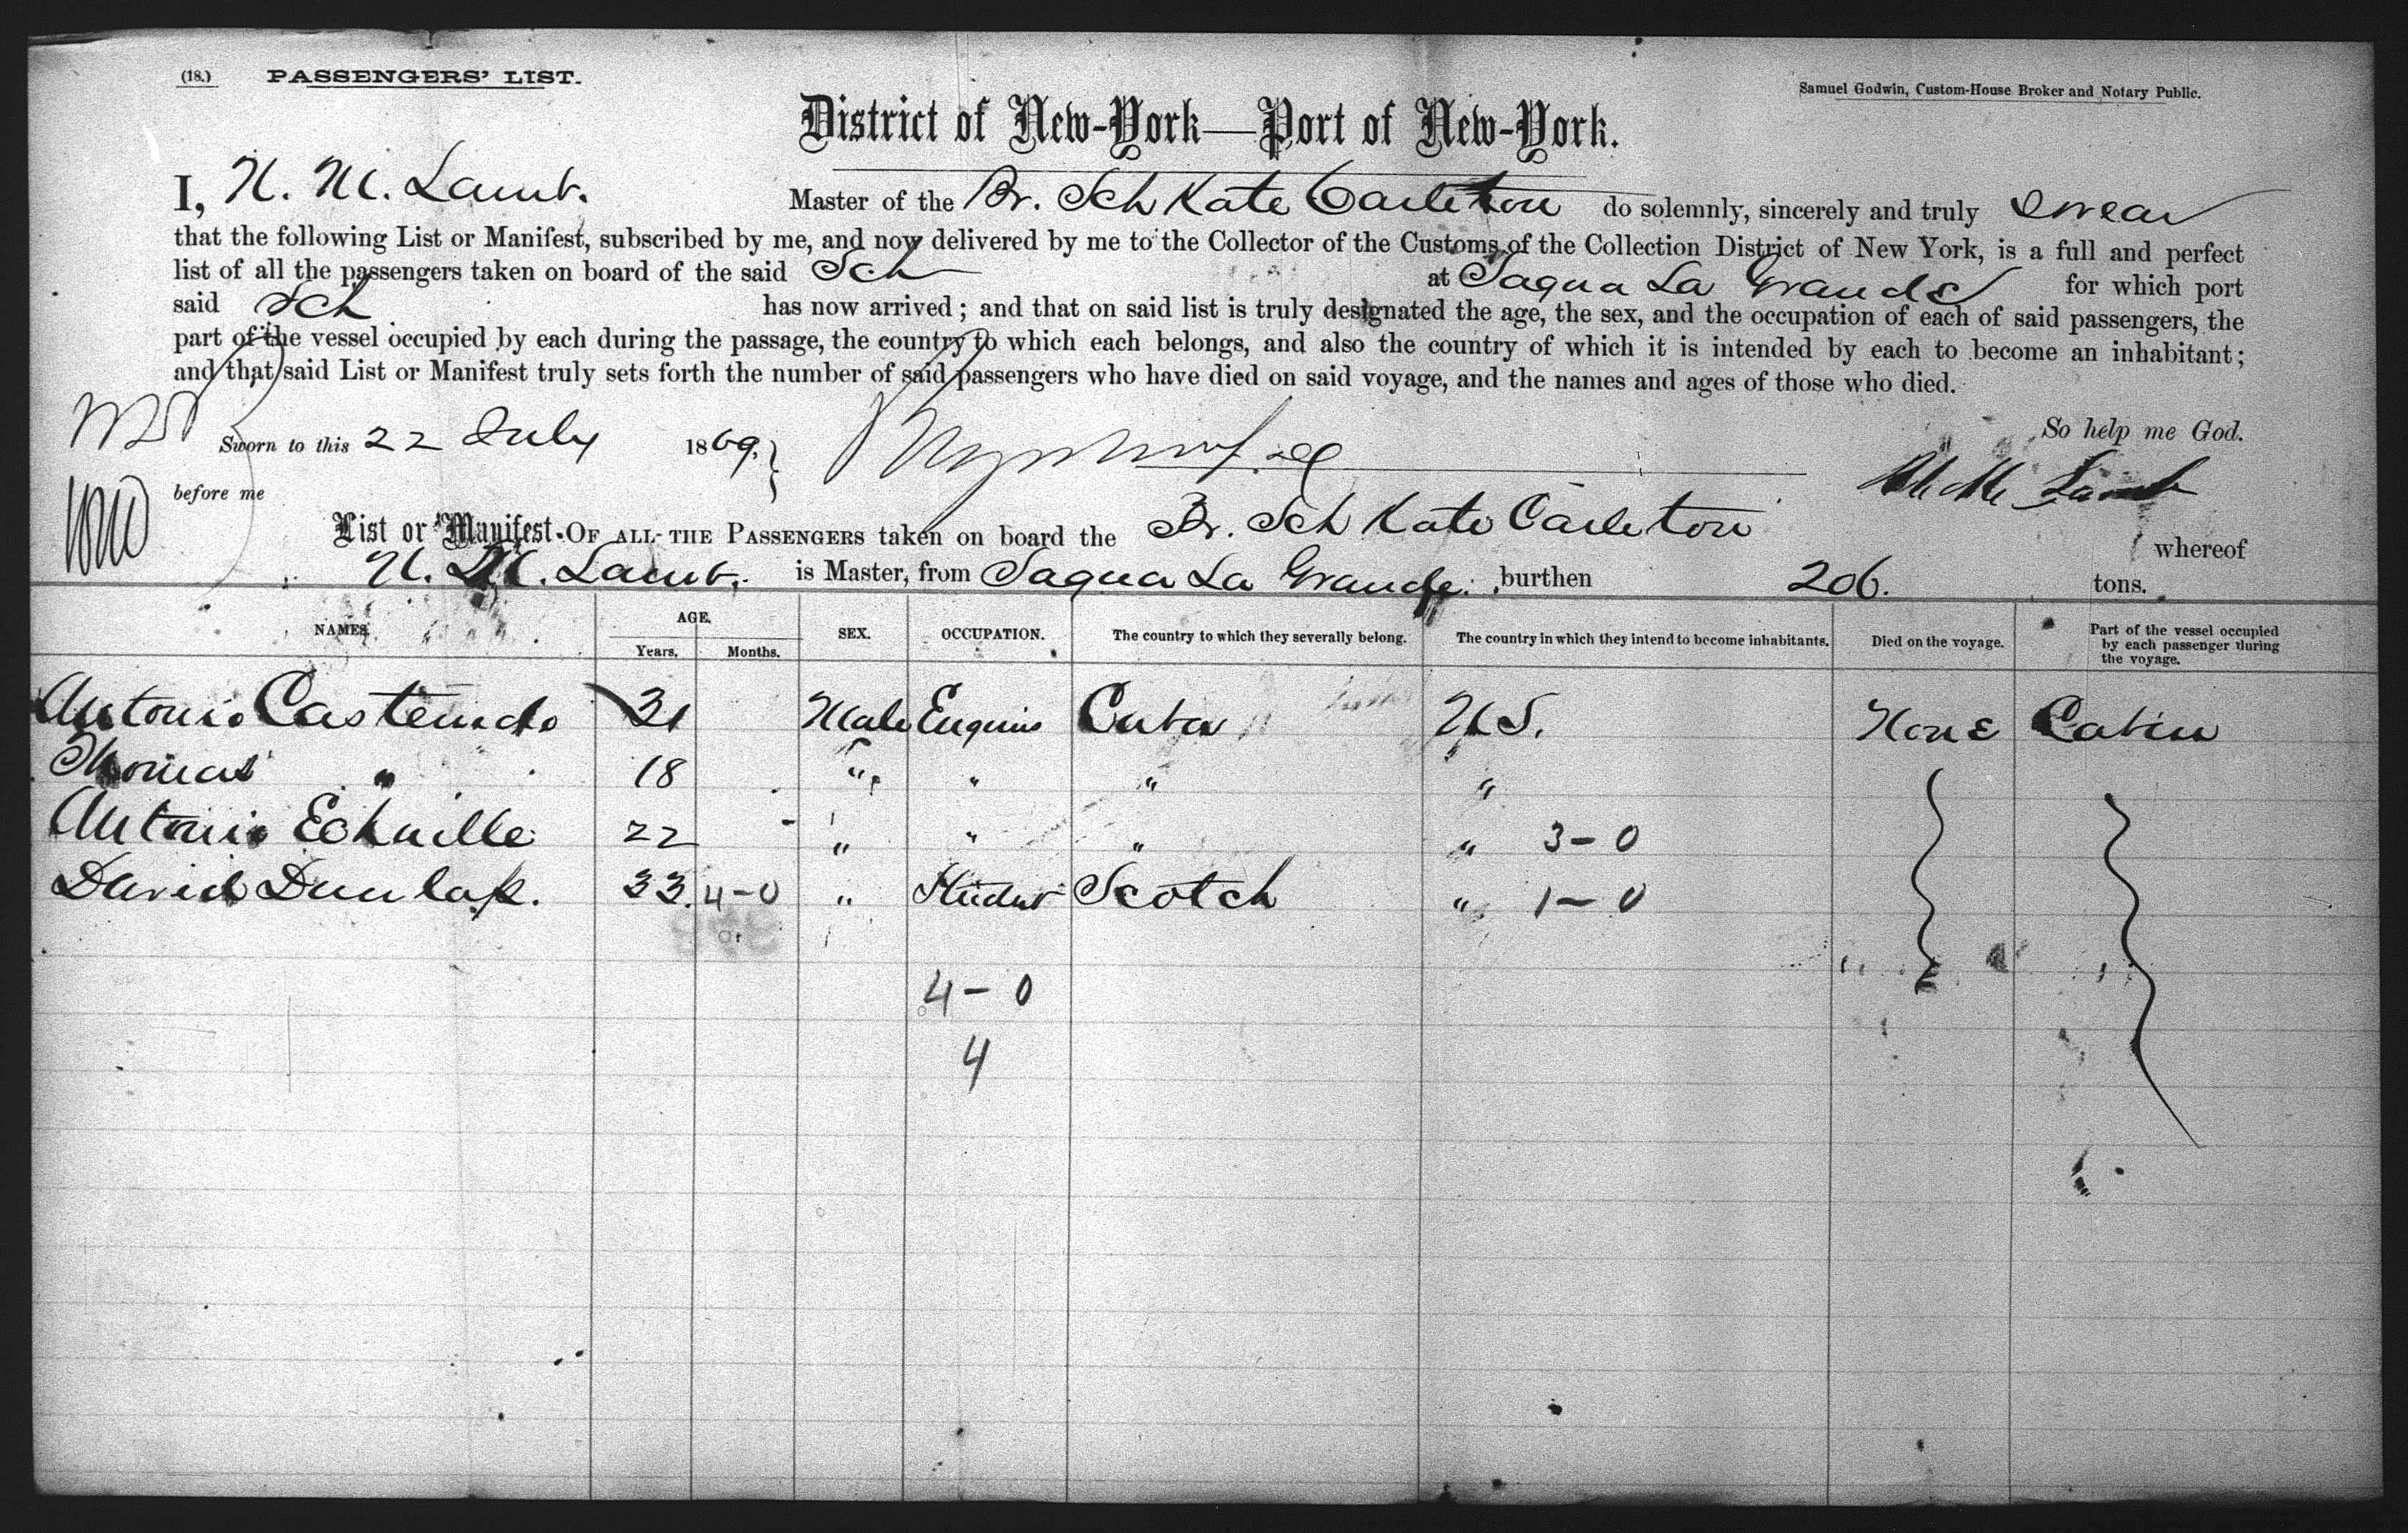 (18.) PASSENGERS' LIST.
Samuel Godwin, Custom-House Broker and Notary Public.
District of New-York—Port of New-York.
I, N. M. Lamb. Master of the Br. Sch Kate Carleton do solemnly, sincerely and truly swear
that the following List or Manifest, subscribed by me, and now delivered by me to the Collector of the Customs of the Collection District of New York, is a full and perfect
list of all the passengers taken on board of the said Sch at Sagua La Grande for which port
said Sch has now arrived; and that on said list is truly designated the age, the sex, and the occupation of each of said passengers, the
part of the vessel occupied by each during the passage, the country to which each belongs, and also the country of which it is intended by each to become an inhabitant;
and that said List or Manifest truly sets forth the number of said passengers who have died on said voyage, and the names and ages of those who died.
So help me God.
Sworn to this 22 July 1869,
before me
Lamb
List or Manifest OF ALL THE PASSENGERS taken on board the Br. Sch Kate Carleton whereof
N. M. Lamb, is Master, from Sagua La Grande. burthen 206. tons.
NAMES. AGE. Years. Months. SEX. OCCUPATION. The country to which they severally belong. The country in which they intend to become inhabitants. Died on the voyage. Part of the vessel occupied by each passenger during the voyage.
Antonio 31 Male Cuba U S. None Cabin
Thomas " 18 " " " "
Antonio 22 " " " " 3-0
David Dunlap. 33. 4-0 " Scotch " 1-0
4-0
4